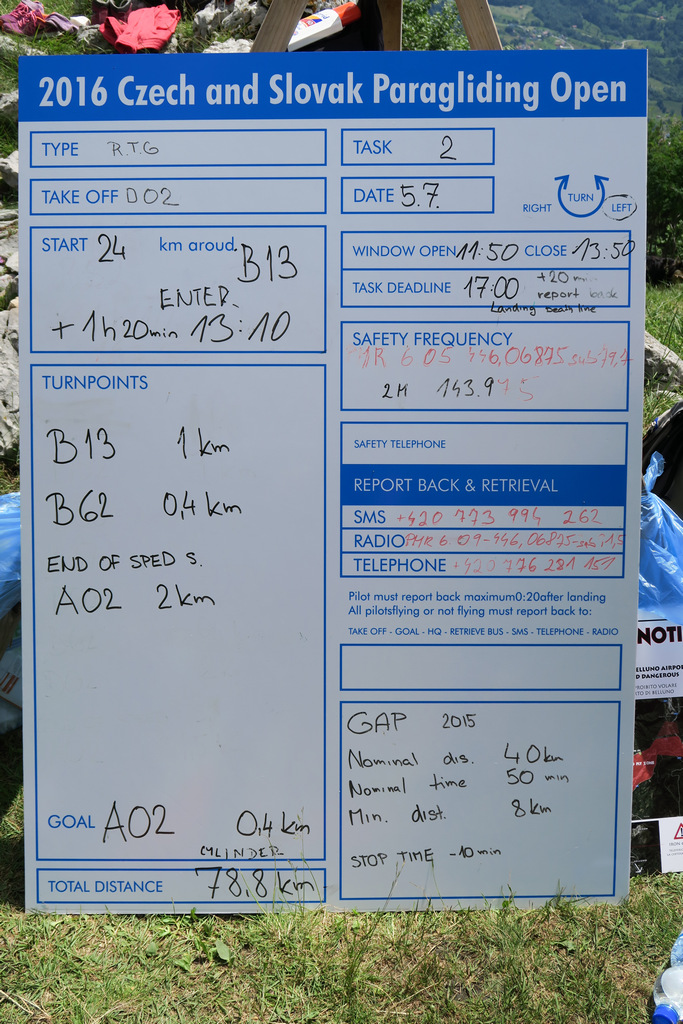 2016 Czech and Slovak Paragliding Open
TYPE R.T.G
TASK 2
TAKE OFF D02
DATE 5.7.
RIGHT TURN LEFT
START 24 km aroud. B13
ENTER.
+ 1h20min 13:10
WINDOW OPEN 11:50 CLOSE 13:50
TASK DEADLINE 17:00 +20 min
report back
Landing Death line
SAFETY FREQUENCY
446,06875
2M 143.975
TURNPOINTS
B13 1 km
B62 0,4 km
END OF SPED S.
A02 2 km
GOAL A02 0,4 km
CYLINDER
TOTAL DISTANCE 78,8 km
SAFETY TELEPHONE
REPORT BACK & RETRIEVAL
SMS +420 773 994 262
RADIO PMR 6 09-446,06875
TELEPHONE +420 776 281 151
Pilot must report back maximum0:20after landing
All pilotsflying or not flying must report back to:
TAKE OFF - GOAL - HQ - RETRIEVE BUS - SMS - TELEPHONE - RADIO
GAP 2015
Nominal dis. 40km
Nominal time 50 min
Min. dist. 8 km
STOP TIME -10 min
NOTI
ELLUNO AIRPO
D DANGEROUS
PROIBITO VOLARE
TO DI BELLUNO